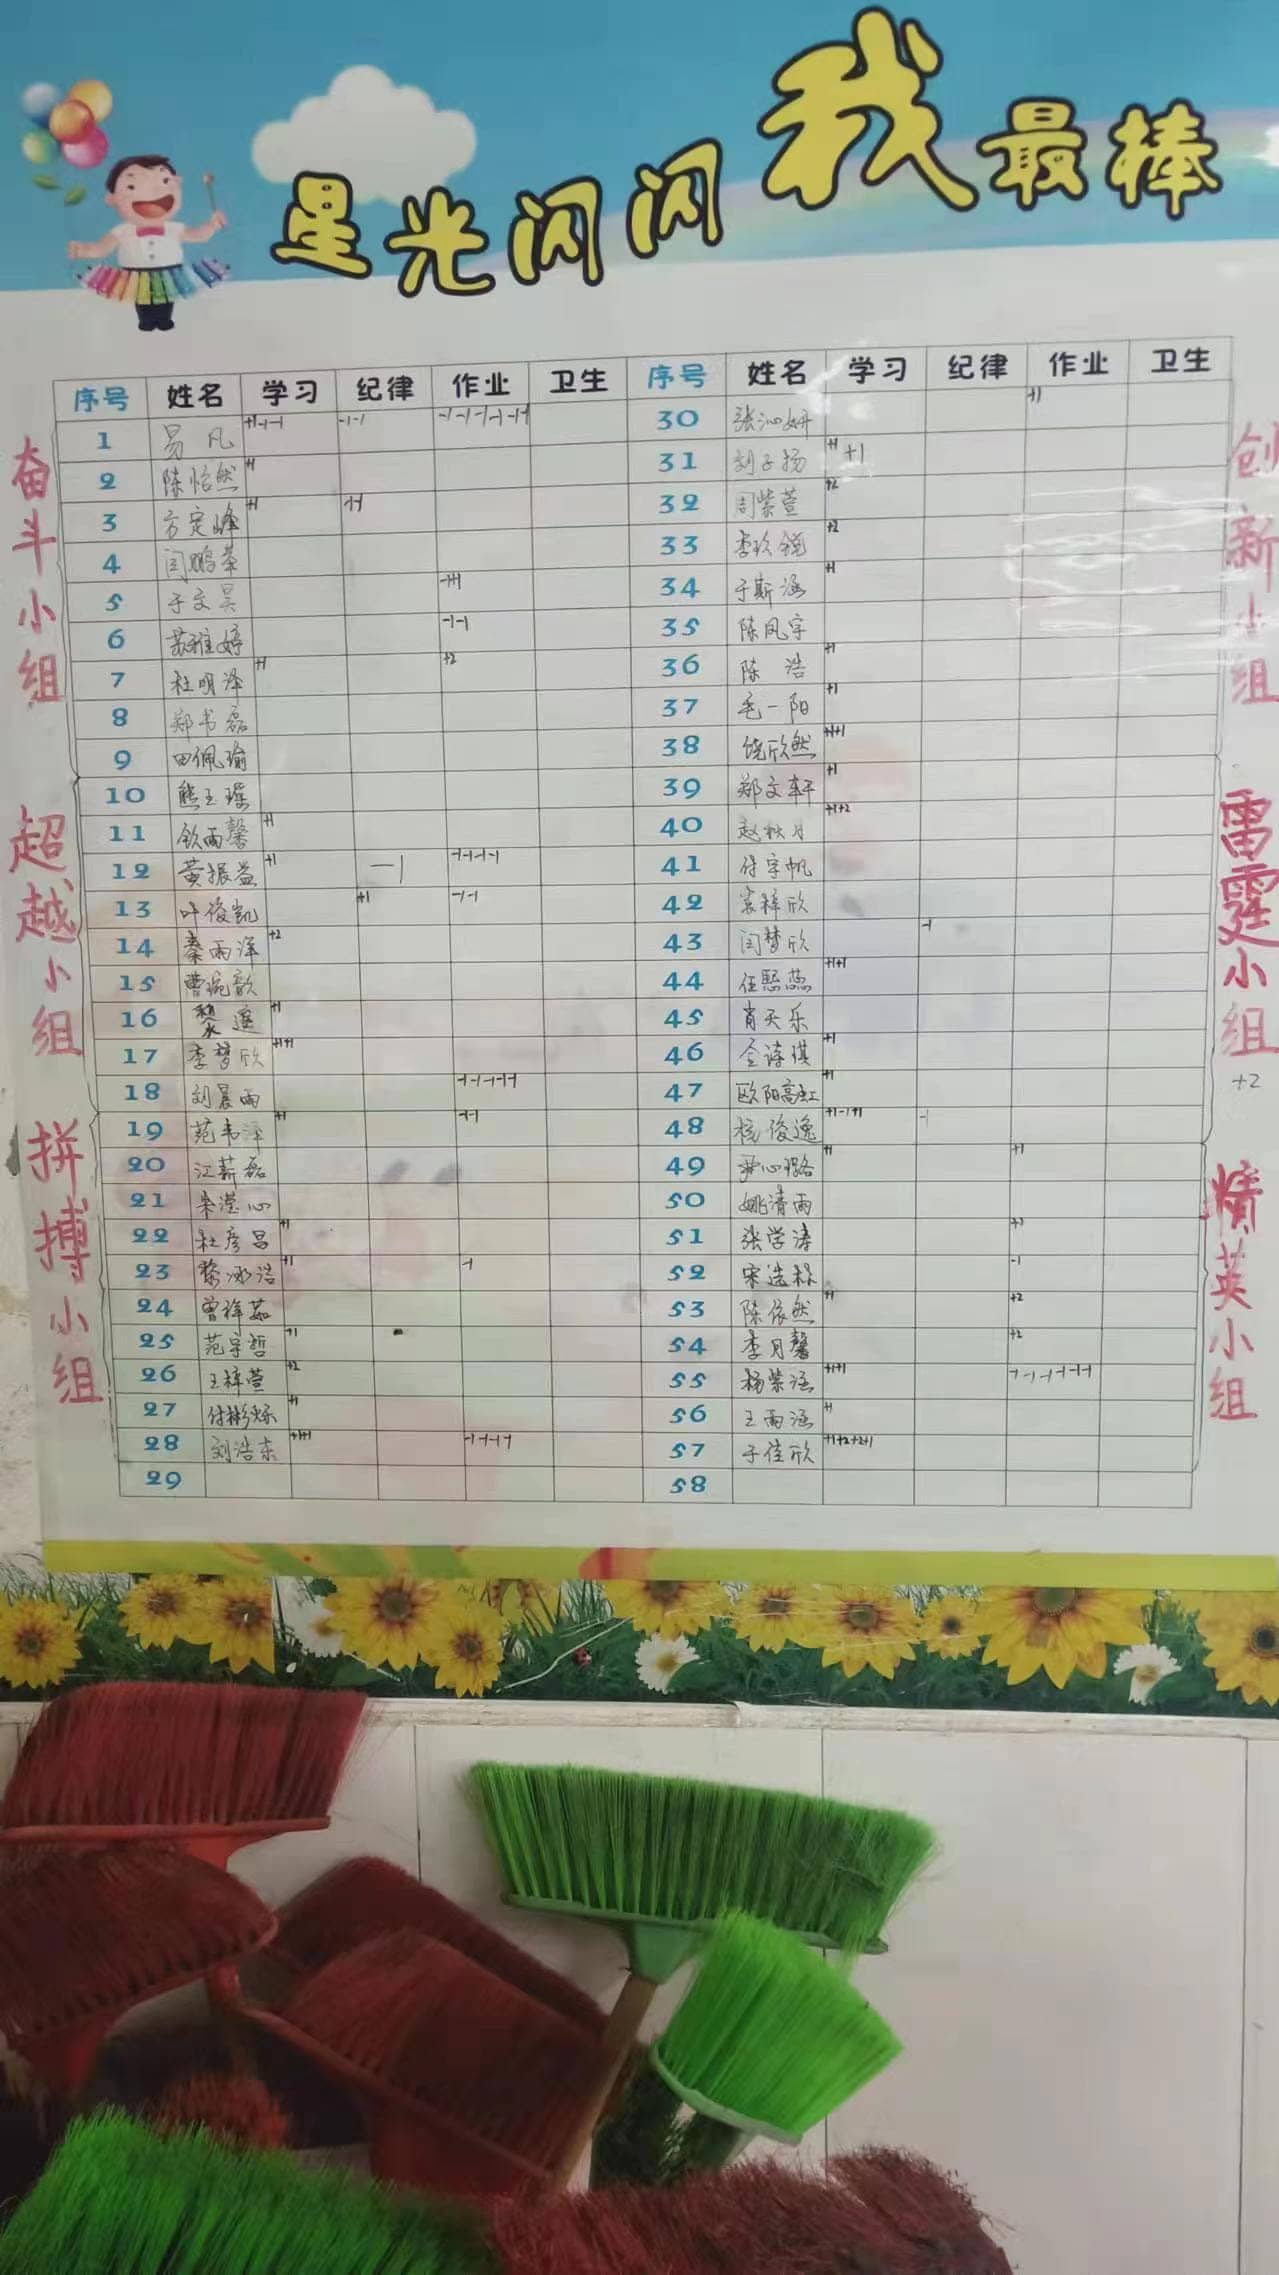 星光闪闪我最棒
序号 姓名 学习 纪律 作业 卫生 序号 姓名 学习 纪律 作业 卫生
1 易凡 +1-1-1 -1-1 30 张沁妍 +1
2 陈怡然 +1 31 刘子扬 +1 +1
3 方定峰 +1 32 周紫萱 +2
4 闫鹏 33 李玖 +2
5 于文昊 34 于斯涵 +1
6 苏雅婷 -1-1 35 陈凤宇
7 杜明泽 +1 +2 36 陈浩 +1
8 郑书磊 37 毛一阳 +1
9 田佩瑜 38 饶欣然 +1+1
10 熊玉瑶 39 郑文轩 +1
11 钦雨馨 +1 40 赵秋月 +1+2
12 黄振益 +1 -1 -1-1-1-1 41 付宇帆
13 叶俊凯 +1 -1-1 42 袁梓欣
14 秦雨泽 +2 43 闫梦欣 -1
15 曹婉歆 44 任熙蕊 +1+1
16 黎遥 +1 45 肖天乐
17 李梦欣 +1+1 46 全诗琪 +1
18 刘晨雨 -1-1-1-1-1 47 欧阳高虹 +1
19 范韦泽 +1 -1-1 48 俊逸 +1-1+1 -1
20 江薪磊 49 心璐 +1 +1
21 朱滢心 50 姚清雨
22 杜彦昌 +1 51 张学涛
23 黎沐浩 +1 -1 52 宋 -1
24 曾祥茹 53 陈依然 +1 +2
25 范宇哲 +1 54 李月馨 +2
26 王梓萱 +2 55 杨紫涵 +1+1 -1-1-1-1-1-1
27 付彬烁 +1 56 王雨涵 +1
28 刘浩东 +1+1 -1-1-1-1 57 于佳欣 +1+2+2+1
29 58
奋斗小组
超越小组
拼搏小组
创新小组
雷霆小组
+2
精英小组